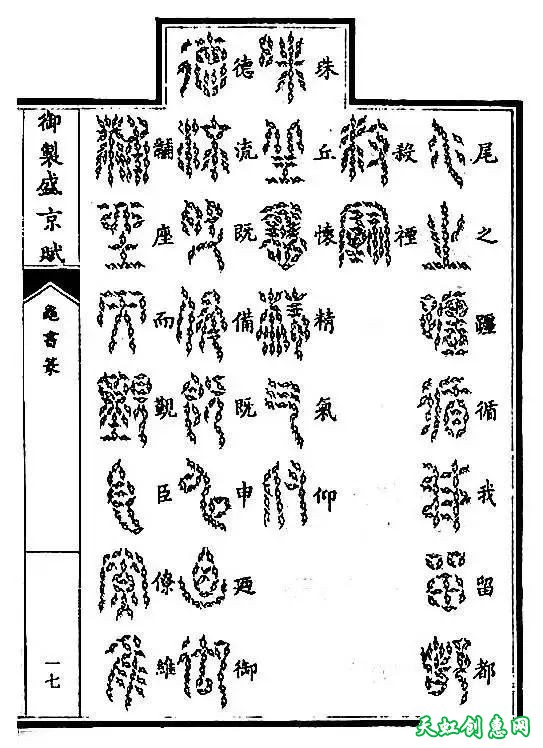 尾之躔循我留都
禋
珠丘懷精氣仰
德流既備既申廼御
黼座而覲臣僚維
御製盛京賦
龜書篆
一七
天虹创意网